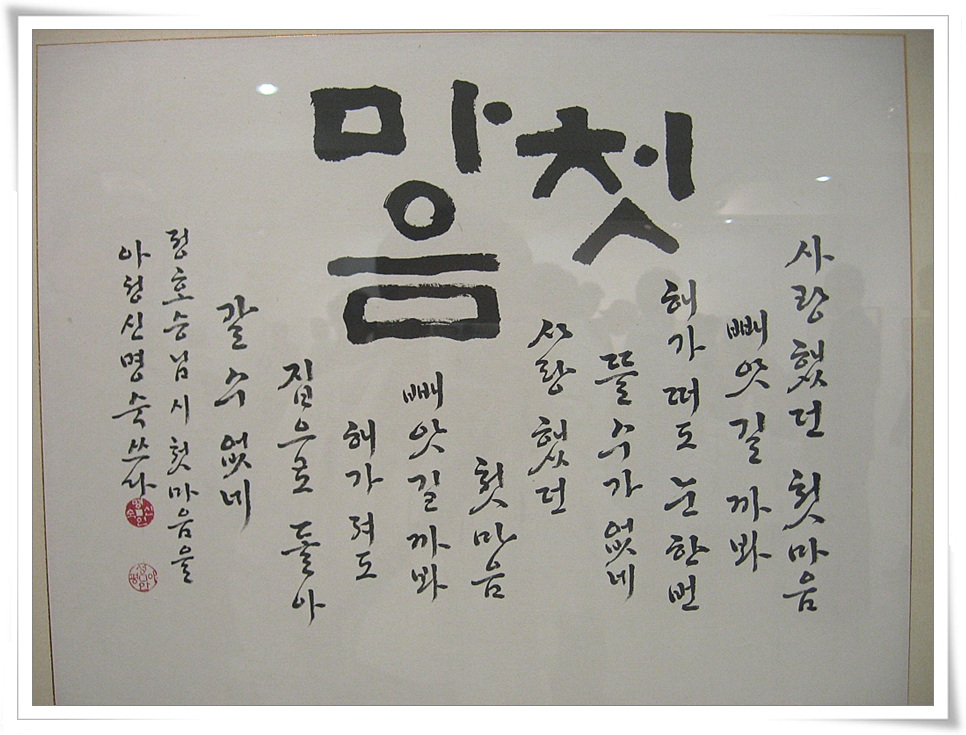 첫마음
사랑했던 첫마음
빼앗길까봐
해가 떠도 눈 한번
뜰 수가 없네
사랑했던
첫마음
빼앗길까봐
해가 져도
집으로 돌아
갈 수 없네
정호승님 시 첫마음을
아청 신명숙 쓰다